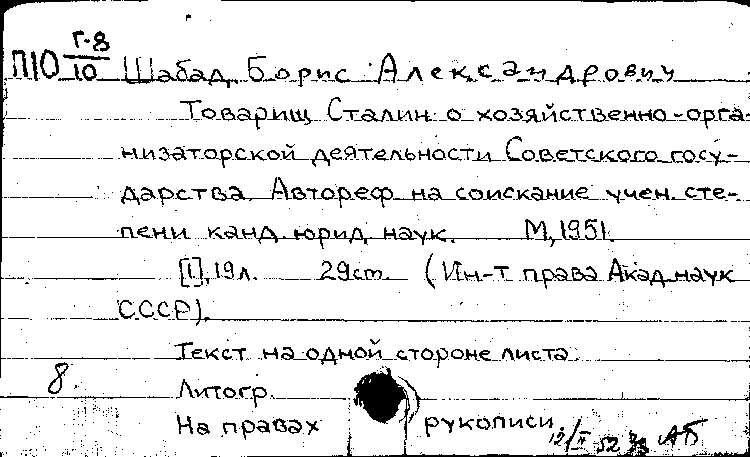 П10 Г-8/10 Шабад, Борис Александрович
Товарищ Сталин о хозяйственно-орга-
низаторской деятельности Советского госу-
дарства. Автореф. на соискание учен. сте-
пени канд. юрид. наук. М., 1951.
[1], 19л. 29см. (Ин-т права Акад. наук
СССР).
Текст на одной стороне листа.
8. Литогр.
На правах рукописи
12/II 52 АБ